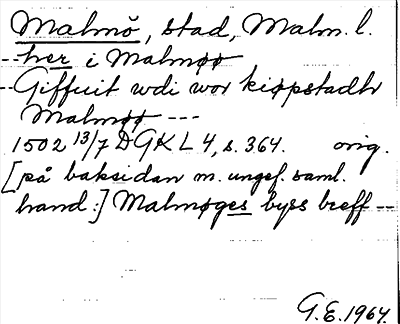 Malmö, stad, Malm. l.
-- her i Malmøø
-- Giffuit wdi wor kiøpstadh
Malmøø ---
1502 13/7 DGKL 4, s. 364. orig.
[på baksidan m. ungef. saml.
hand:] Malmøges byss breff --
G.E. 1964.